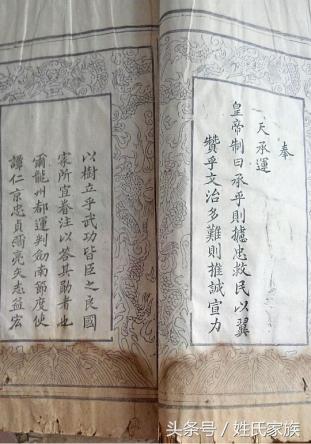 奉
天承運
皇帝制曰承平則攄忠救民以翼
贊乎文治多難則推誠宣力
以樹立乎武功皆臣之良國
家所宜眷注以答其勛者也
爾龍州都運判劍南節度使
譚仁京忠貞亮矢志益宏
头条号／姓氏家族